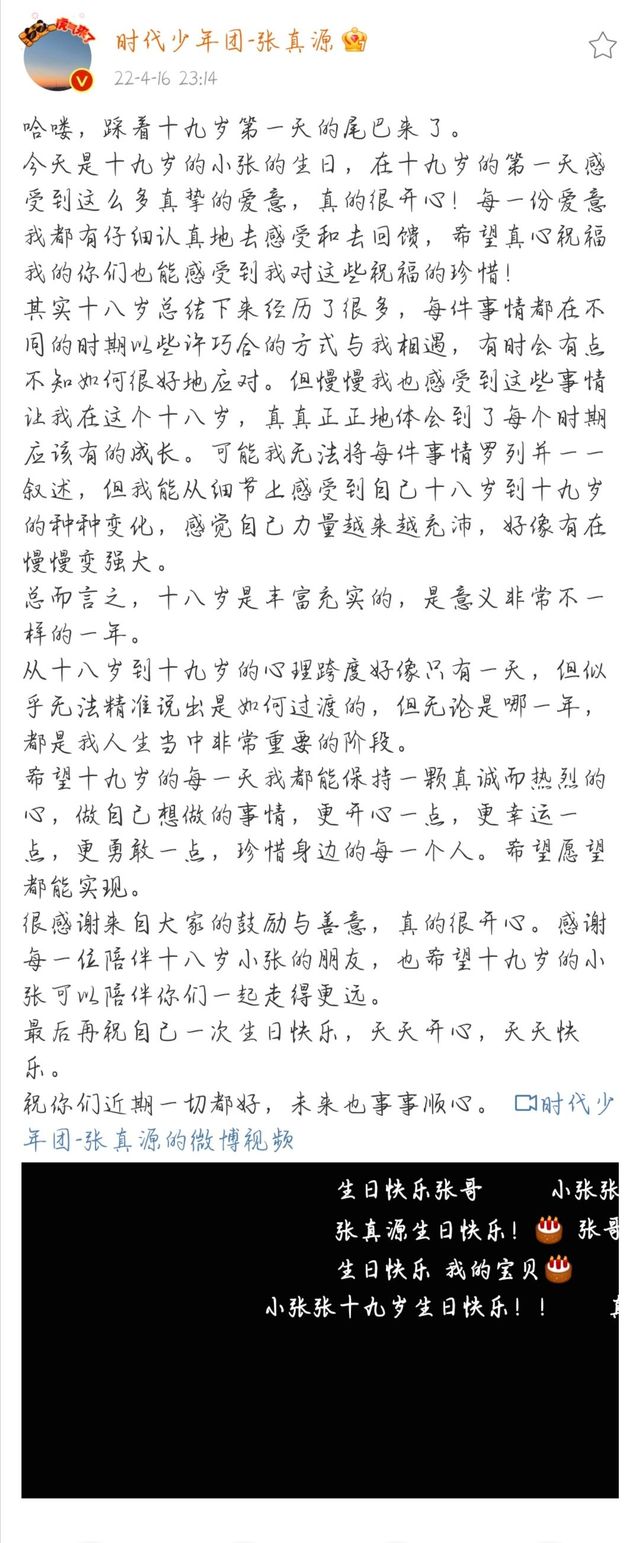 虎气来了
时代少年团-张真源
22-4-16 23:14
哈喽，踩着十九岁第一天的尾巴来了。
今天是十九岁的小张的生日，在十九岁的第一天感
受到这么多真挚的爱意，真的很开心！每一份爱意
我都有仔细认真地去感受和去回馈，希望真心祝福
我的你们也能感受到我对这些祝福的珍惜！
其实十八岁总结下来经历了很多，每件事情都在不
同的时期以些许巧合的方式与我相遇，有时会有点
不知如何很好地应对。但慢慢我也感受到这些事情
让我在这个十八岁，真真正正地体会到了每个时期
应该有的成长。可能我无法将每件事情罗列并一一
叙述，但我能从细节上感受到自己十八岁到十九岁
的种种变化，感觉自己力量越来越充沛，好像有在
慢慢变强大。
总而言之，十八岁是丰富充实的，是意义非常不一
样的一年。
从十八岁到十九岁的心理跨度好像只有一天，但似
乎无法精准说出是如何过渡的，但无论是哪一年，
都是我人生当中非常重要的阶段。
希望十九岁的每一天我都能保持一颗真诚而热烈的
心，做自己想做的事情，更开心一点，更幸运一
点，更勇敢一点，珍惜身边的每一个人。希望愿望
都能实现。
很感谢来自大家的鼓励与善意，真的很开心。感谢
每一位陪伴十八岁小张的朋友，也希望十九岁的小
张可以陪伴你们一起走得更远。
最后再祝自己一次生日快乐，天天开心，天天快
乐。
祝你们近期一切都好，未来也事事顺心。 时代少
年团-张真源的微博视频
生日快乐张哥 小张张
张真源生日快乐！ 张哥
生日快乐 我的宝贝
小张张十九岁生日快乐！！